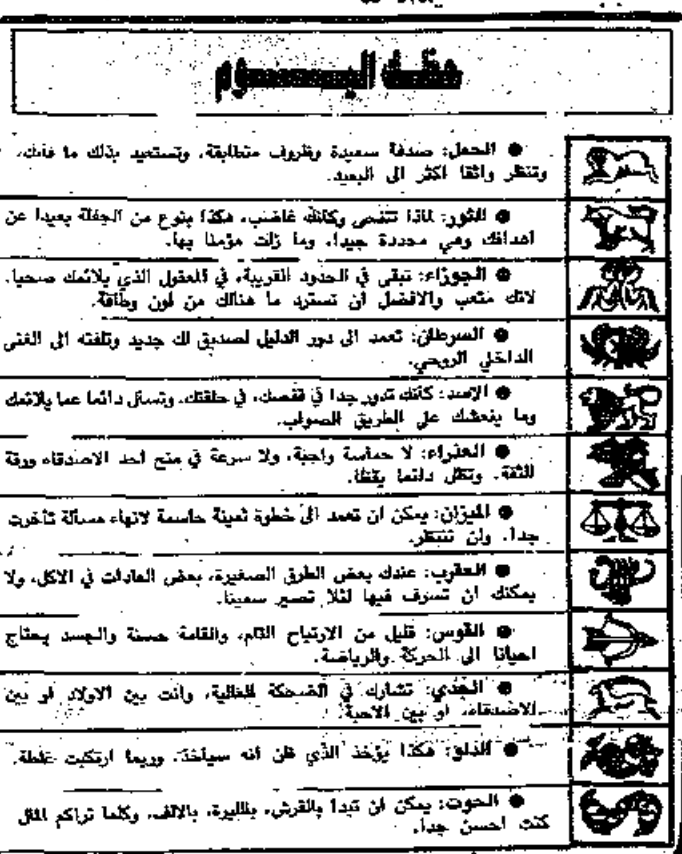 حظك اليـــوم
● الحمل: صدفة سعيدة وظروف متطابقة، وتستعيد بذلك ما فاتك،
وتنظر واثقا اكثر الى البعيد.
● الثور: لماذا تتنحى وكانك غاضب، هكذا بنوع من الجفلة بعيدا عن
اهدافك وهي محددة جيدا، وما زلت مؤمنا بها.
● الجوزاء: تبقى في الحدود القريبة، في المعقول الذي يلائمك صحيا،
لانك متعب والافضل ان تسترد ما هنالك من لون وطاقة.
● السرطان: تعمد الى دور الدليل لصديق لك جديد وتلفته الى الغنى
الداخلي الروحي.
● الاسد: كانك تدور جدا في قفصك، في حلقتك، وتسال دائما عما يلائمك
وما ينعشك على الطريق الصواب.
● العذراء: لا حماسة واجبة، ولا سرعة في منح احد الاصدقاء ورقة
الثقة. وتظل دائما يقظا.
● الميزان: يمكن ان تعمد الى خطوة ثمينة حاسمة لانهاء مسالة تاخرت
جدا. ولن تنتظر.
● العقرب: عندك بعض الطرق الصغيرة، بعض العادات في الاكل، ولا
يمكنك ان تسرف فيها لئلا تصير سمينا.
● القوس: قليل من الارتياح التام، والقامة حسنة والجسد يحتاج
احيانا الى الحركة والرياضة.
● الجدي: تشارك في الضحكة الغالية، وانت بين الاولاد او بين
الاصدقاء، او بين الاحبة.
● الدلو: هكذا يؤخذ الذي ظن انه سياخذ، وربما ارتكبت غلطة.
● الحوت: يمكن ان تبدا بالقرش، بالليرة، بالالف، وكلما تراكم المال
كنت احسن جدا.